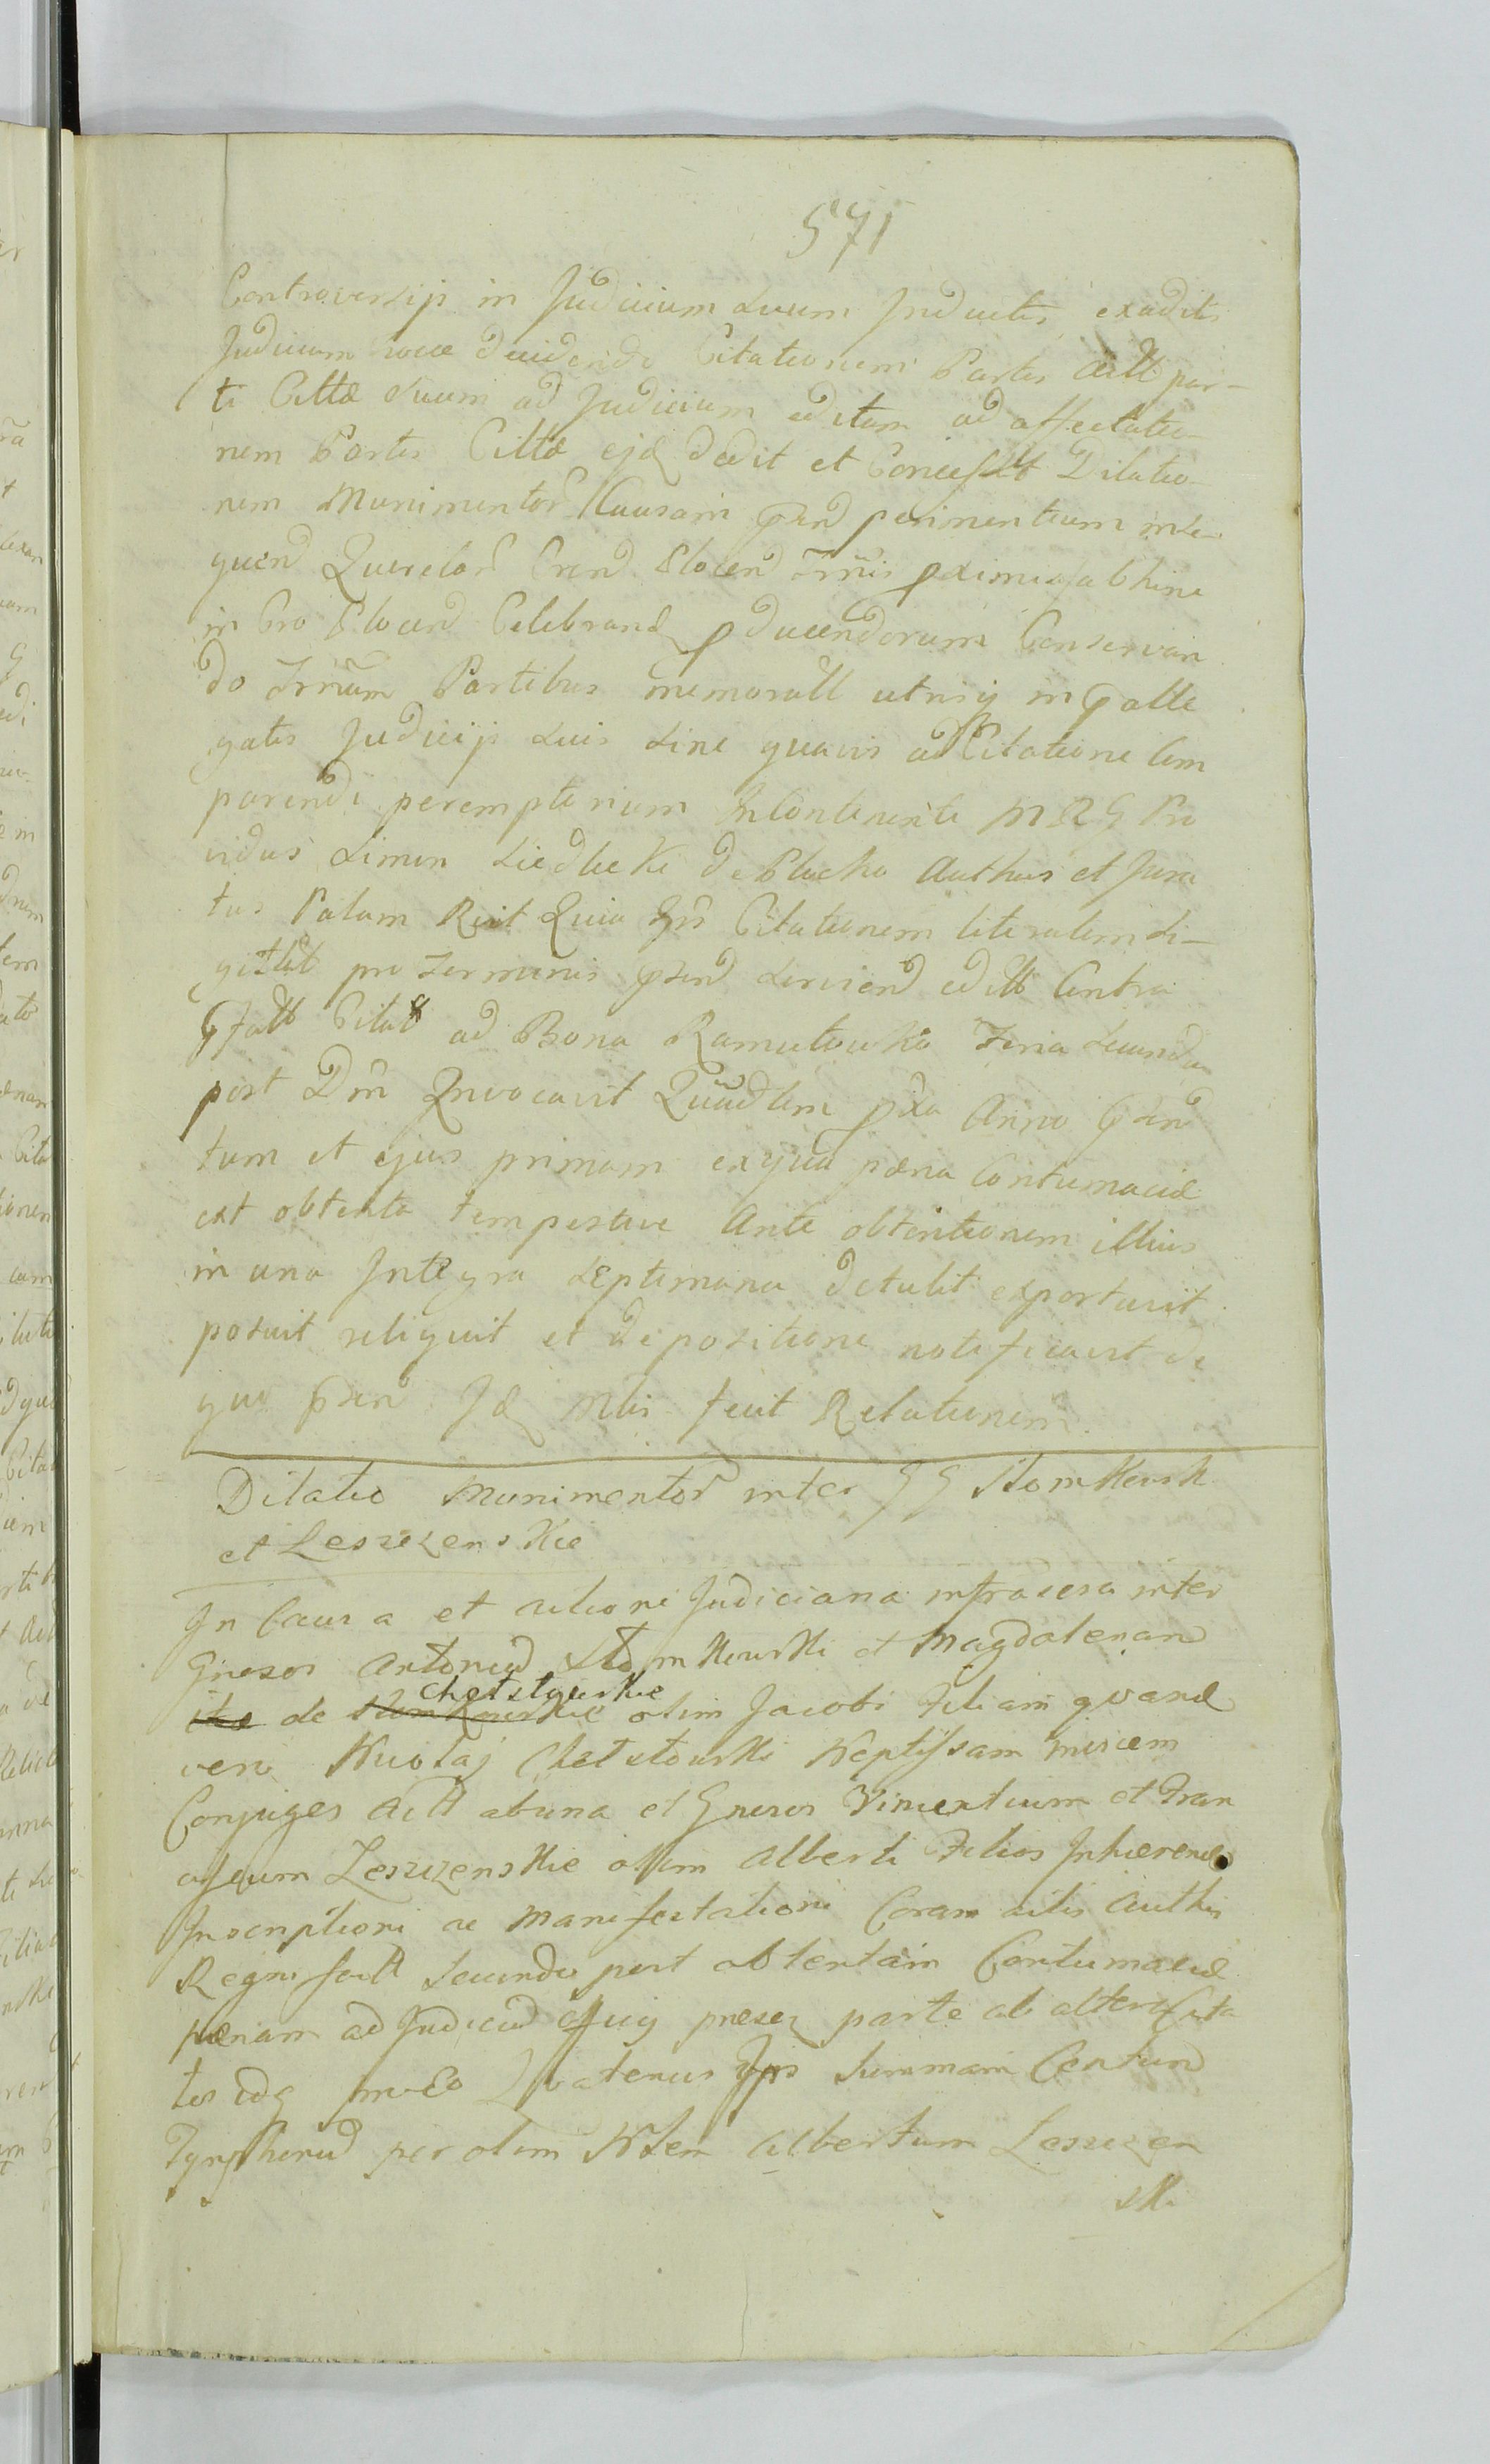 571
Controversijs in Judicium suum Inductis exaditis
Judicium hocce decidendo Citationem Partis Actt par-
ti Cittæ suum ad Judicium editam ad affectatio-
nem Partis Cittæ ejd dedit et Concessit Dilatio-
nem Munimentor Causam pnd perimentium inse-
quend Querelar Crend Plocen Trnis pximis abhinc
in Cro Plocen Celebrand pducendorum Conservan
do Trnum Partibus memoratt utrisq in palle
gatis Judicijs suis sine quavis adCitatione Com
parendi peremptorium Incontinenti MRG Pro
vidus Simon Siedlecki de Plocko Authus et Jura
tus Palam Rcit Quia Ipse Citationem literalem si-
gillt pro Terminis psend serviend editt Contra
pfatt Citat ad Bona Ramutowko Feria secunda
post Dm Invocavit Quadlem pxa Anno psen
tum et ejus primam ex qua pæna Contumaciæ
est obtenta tempestive Ante obtentionem illius
in una Integra septimana detulit exportavit
posuit reliquit et de positione notificavit de
quo psen Id Mtis fecit Relationem.
Dilatio Munimentor inter GG Slomkowsk
et Leszczenskie
In Causa et actione Judiciana infrascra inter
Gnesos Antonium Slomkowski et Magdalenam
de Chelstowskie olim Jacobi Filiam qvand
vero Nicolaj Chelstowski Neptissam invicem
Conjuges Actt abuna et Gnesos Vincentium et Fran
ciscum Leszczenskie olim Alberti Filios Inhærend
Inscriptioni ac Manifestationi Coram actis Authis
Regni factt secundo post obtentam Contumaciæ
pænam ad Judiciu parte ab altera Cita
tos Quatenus Ipsis summam Centum
Tynphorum per olim Nlem Albertum Leszczen
ski